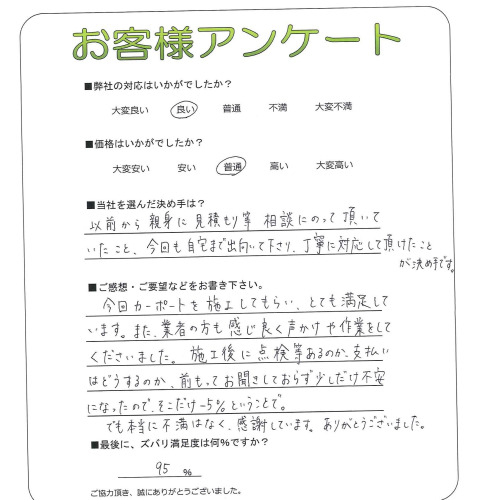 お客様アンケート
■弊社の対応はいかがでしたか？
大変良い 良い 普通 不満 大変不満
■価格はいかがでしたか？
大変安い 安い 普通 高い 大変高い
■当社を選んだ決め手は？
以前から親身に見積もり等 相談にのって頂いて
いたこと、今回も自宅まで出向いて下さり、丁寧に対応して頂けたこと
が決め手です。
■ご感想・ご要望などをお書き下さい。
今回カーポートを施工してもらい、とても満足して
います。また、業者の方も感じ良く声かけや作業をして
くださいました。施工後に点検等あるのか、支払い
はどうするのか、前もってお聞きしておらず少しだけ不安
になったので、そこだけ-5%ということで。
でも本当に不満はなく、感謝しています。ありがとうございました。
■最後に、ズバリ満足度は何%ですか？
95 %
ご協力頂き、誠にありがとうございました。